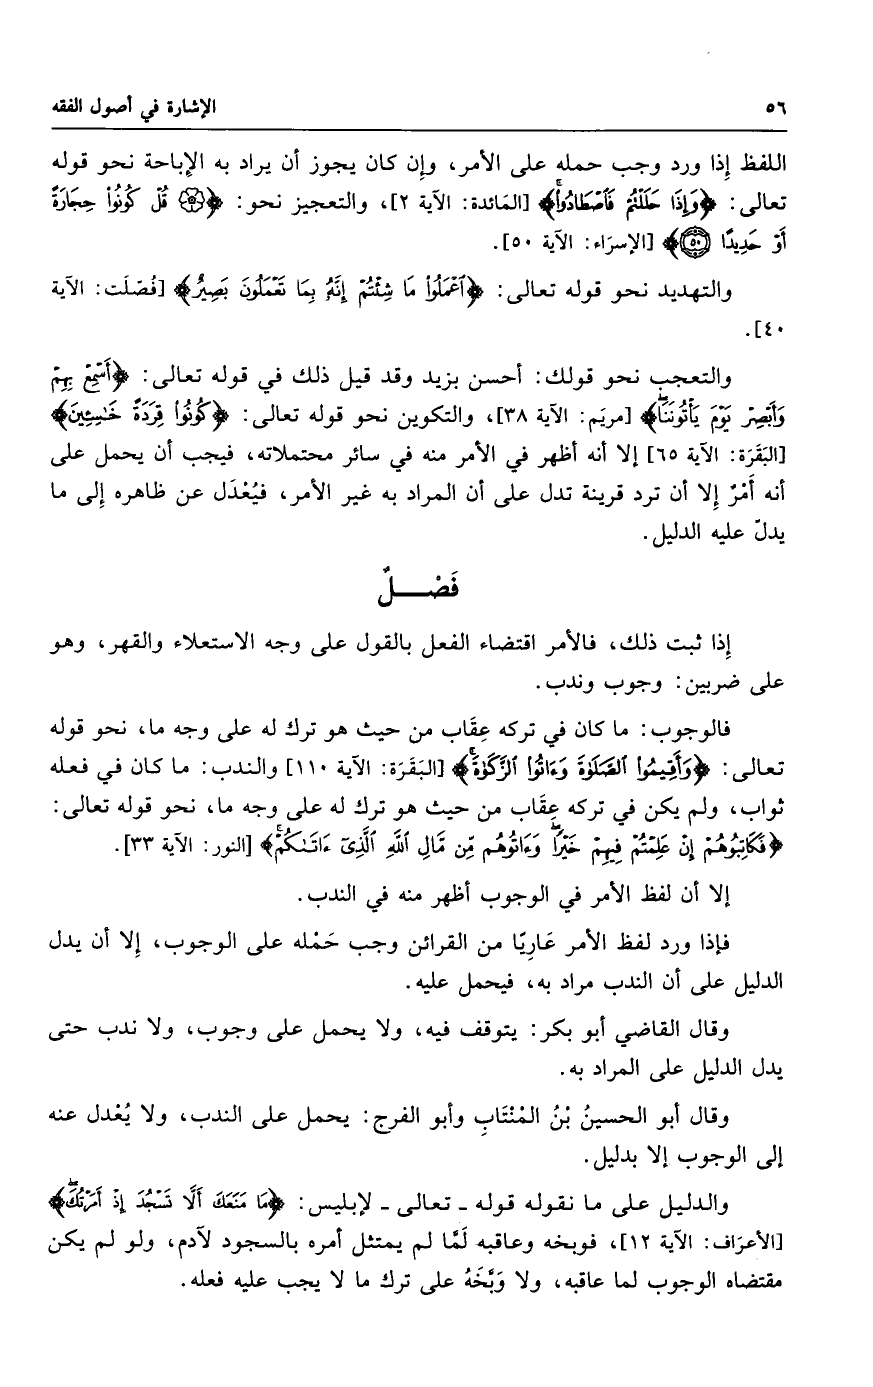 ٥٦ الإشارة في أصول الفقه
اللفظ إِذا ورد وجب حمله على الأمر، وإن كان يجوز أن يراد به الإباحة نحو قوله
تعالى: ﴿وَإِذَا حَلَلْتُمْ فَٱصْطَادُواْ﴾ [المَائدة: الآية ٢]، والتعجيز نحو: ﴿۞ قُلْ كُونُواْ حِجَارَةً
أَوْ حَدِيدًا ۝٥٠﴾ [الإسرَاء: الآية ٥٠].
والتهديد نحو قوله تعالى: ﴿ٱعْمَلُواْ مَا شِئْتُمْ إِنَّهُۥ بِمَا تَعْمَلُونَ بَصِيرٌ﴾ [فُصّلَت: الآية
٤٠].
والتعجب نحو قولك: أحسن بزيد وقد قيل ذلك في قوله تعالى: ﴿أَسْمِعْ بِهِمْ
وَأَبْصِرْ يَوْمَ يَأْتُونَنَا﴾ [مريَم: الآية ٣٨]، والتكوين نحو قوله تعالى: ﴿كُونُواْ قِرَدَةً خَٰسِـِٔينَ﴾
[البَقَرَة: الآية ٦٥] إلا أنه أظهر في الأمر منه في سائر محتملاته، فيجب أن يحمل على
أنه أَمْرٌ إِلا أن ترد قرينة تدل على أن المراد به غير الأمر، فيُعْدَل عن ظاهره إلى ما
يدلّ عليه الدليل.
فَصْـــلٌ
إِذا ثبت ذلك، فالأمر اقتضاء الفعل بالقول على وجه الاستعلاء والقهر، وهو
على ضربين: وجوب وندب.
فالوجوب: ما كان في تركه عِقَاب من حيث هو ترك له على وجه ما، نحو قوله
تعالى: ﴿وَأَقِيمُواْ ٱلصَّلَوٰةَ وَءَاتُواْ ٱلزَّكَوٰةَ﴾ [البَقَرَة: الآية ١١٠] والندب: ما كان في فعله
ثواب، ولم يكن في تركه عِقَاب من حيث هو ترك له على وجه ما، نحو قوله تعالى:
﴿فَكَاتِبُوهُمْ إِنْ عَلِمْتُمْ فِيهِمْ خَيْرًا وَءَاتُوهُم مِّن مَّالِ ٱللَّهِ ٱلَّذِىٓ ءَاتَىٰكُمْ﴾ [النور: الآية ٣٣].
إلا أن لفظ الأمر في الوجوب أظهر منه في الندب.
فإذا ورد لفظ الأمر عَارِيًا من القرائن وجب حَمْله على الوجوب، إِلا أن يدل
الدليل على أن الندب مراد به، فيحمل عليه.
وقال القاضي أبو بكر: يتوقف فيه، ولا يحمل على وجوب، ولا ندب حتى
يدل الدليل على المراد به.
وقال أبو الحسينُ بْنُ المْنْتَابِ وأبو الفرج: يحمل على الندب، ولا يُعْدل عنه
إلى الوجوب إلا بدليل.
والدليل على ما نقوله قوله ـ تعالى ـ لإبليس: ﴿مَا مَنَعَكَ أَلَّا تَسْجُدَ إِذْ أَمَرْتُكَ﴾
[الأعرَاف: الآية ١٢]، فوبخه وعاقبه لَمَّا لم يمتثل أمره بالسجود لآدم، ولو لم يكن
مقتضاه الوجوب لما عاقبه، ولا وَبَّخَهُ على ترك ما لا يجب عليه فعله.